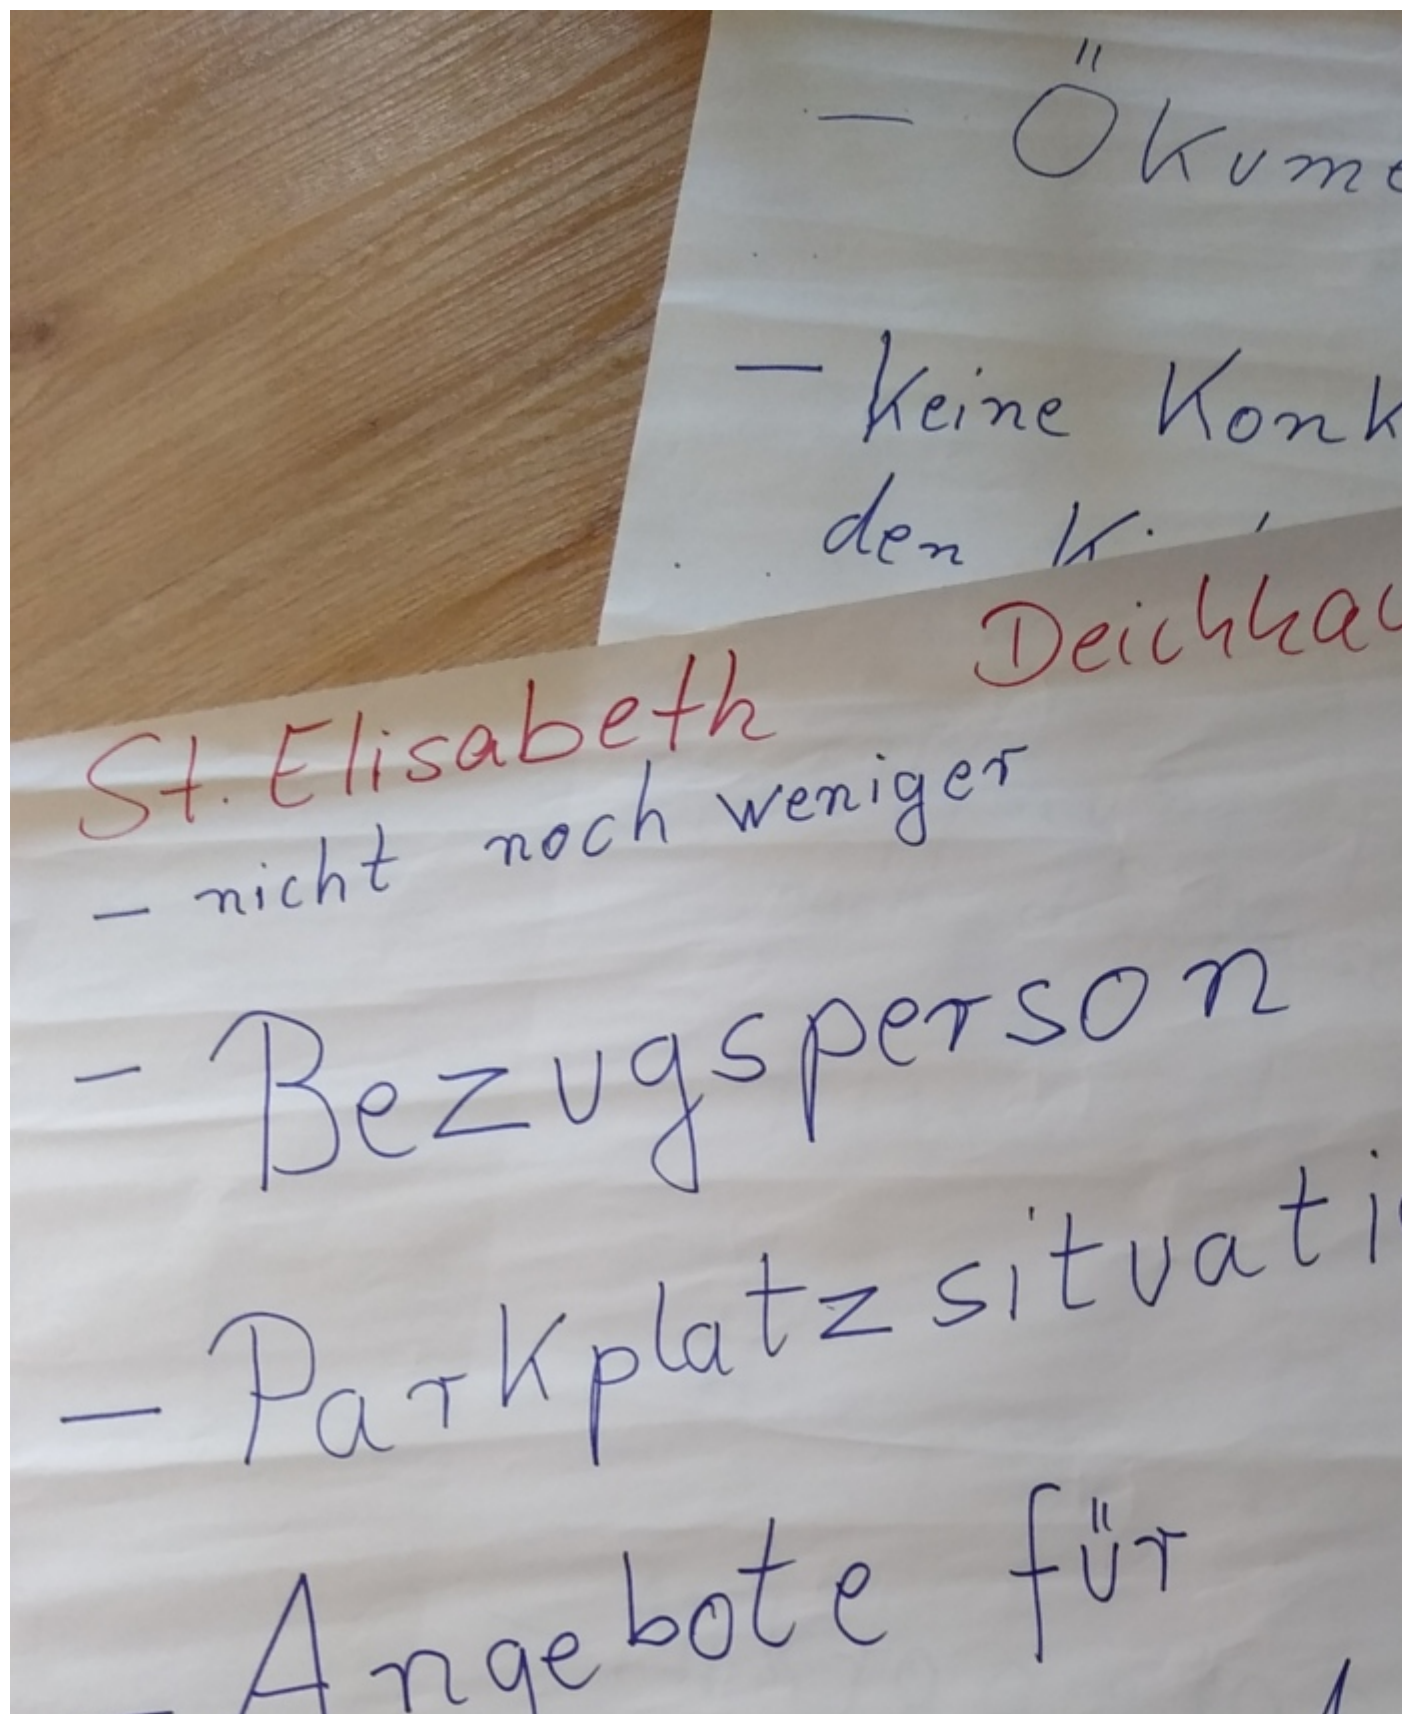 - Ökume
- keine Konk
den Ki
St. Elisabeth Deichhau
- nicht noch weniger
- Bezugsperson
- Parkplatzsituati
- Angebote für